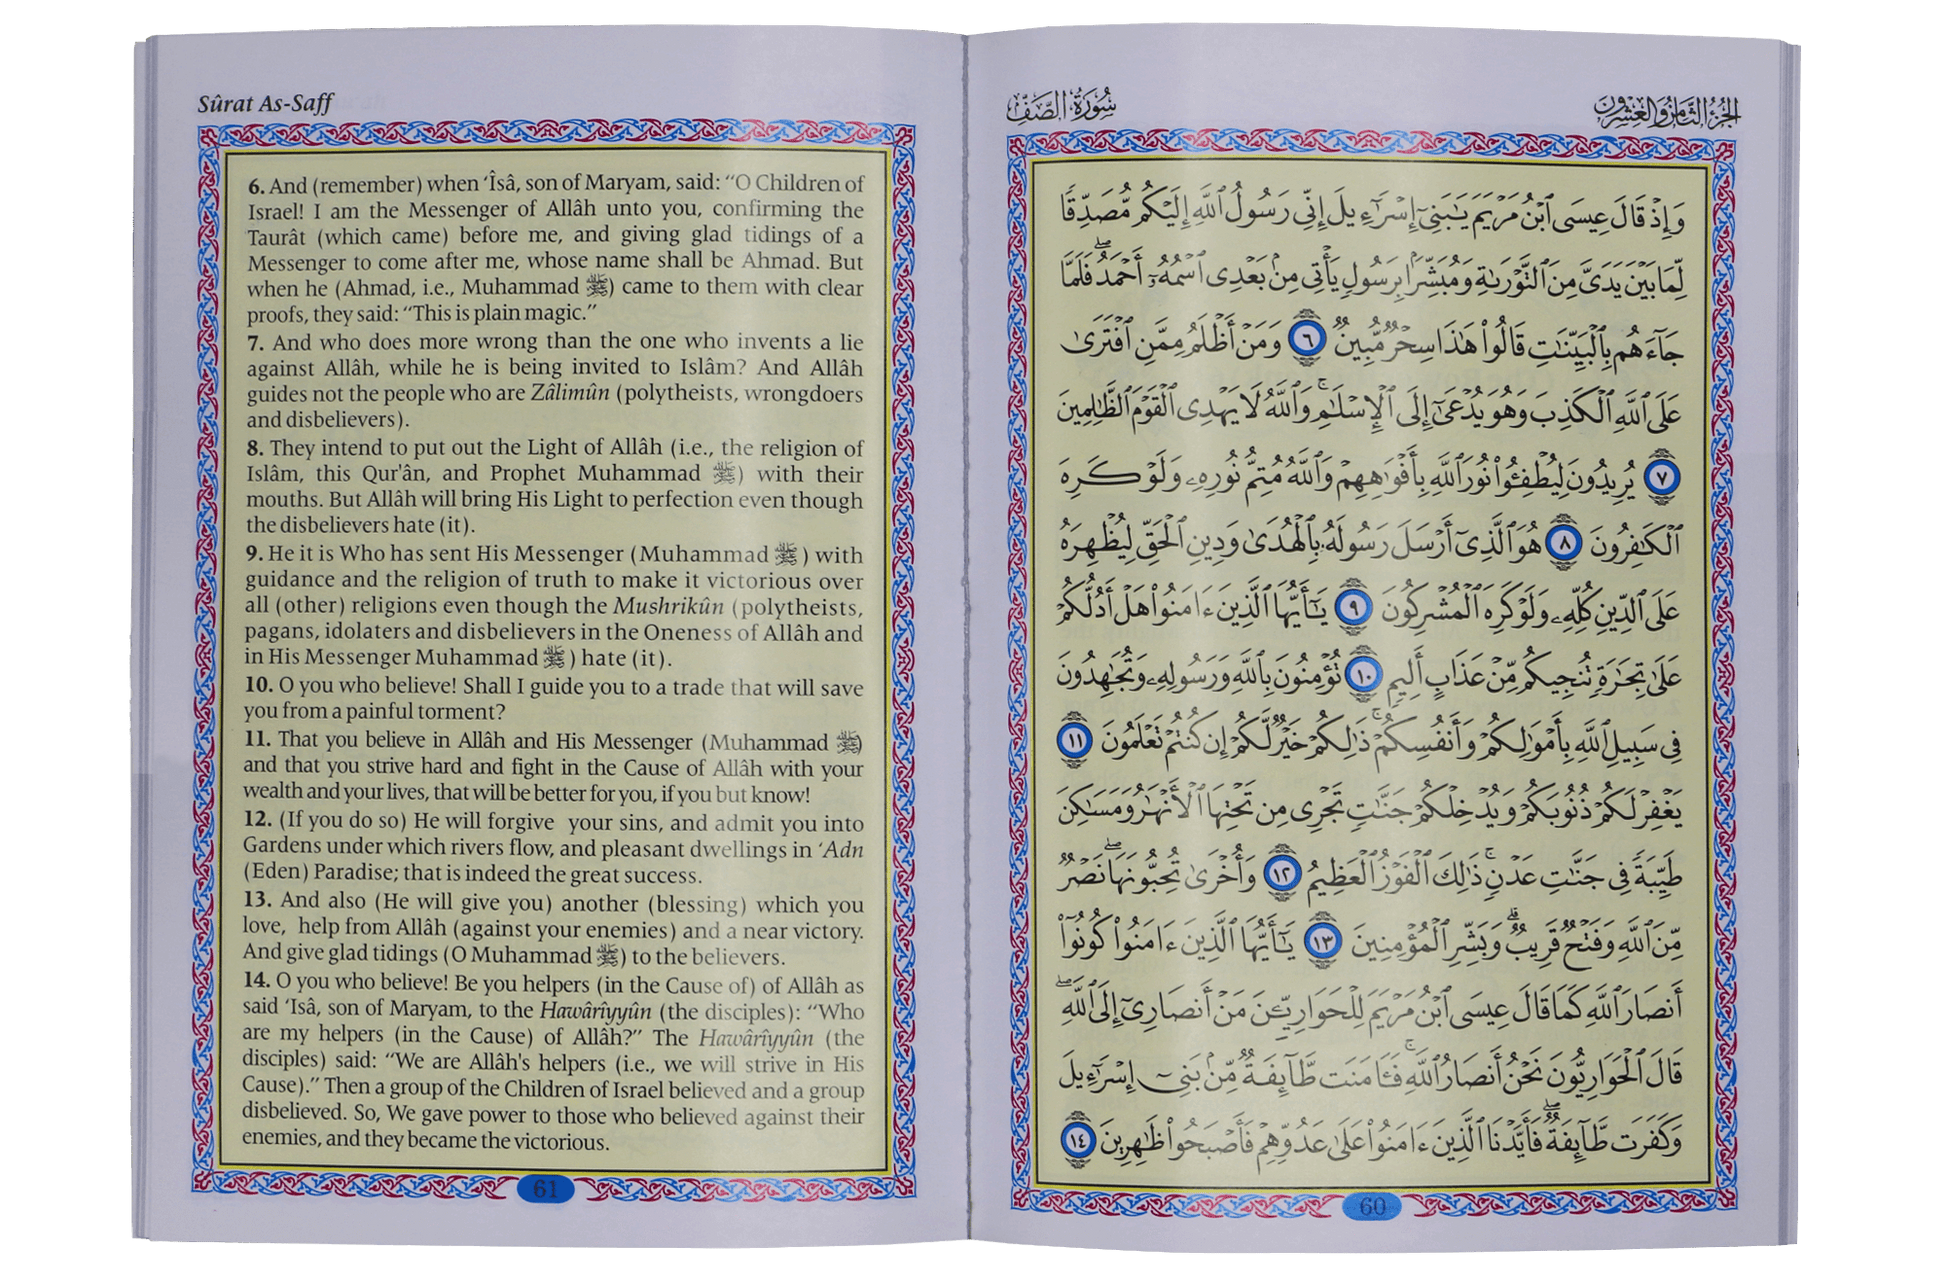 Sûrat As-Saff
6. And (remember) when ‘Îsâ, son of Maryam, said: “O Children of
Israel! I am the Messenger of Allâh unto you, confirming the
Taurât (which came) before me, and giving glad tidings of a
Messenger to come after me, whose name shall be Ahmad. But
when he (Ahmad, i.e., Muhammad ﷺ) came to them with clear
proofs, they said: “This is plain magic.”
7. And who does more wrong than the one who invents a lie
against Allâh, while he is being invited to Islâm? And Allâh
guides not the people who are Zâlimûn (polytheists, wrongdoers
and disbelievers).
8. They intend to put out the Light of Allâh (i.e., the religion of
Islâm, this Qur'ân, and Prophet Muhammad ﷺ) with their
mouths. But Allâh will bring His Light to perfection even though
the disbelievers hate (it).
9. He it is Who has sent His Messenger (Muhammad ﷺ) with
guidance and the religion of truth to make it victorious over
all (other) religions even though the Mushrikûn (polytheists,
pagans, idolaters and disbelievers in the Oneness of Allâh and
in His Messenger Muhammad ﷺ) hate (it).
10. O you who believe! Shall I guide you to a trade that will save
you from a painful torment?
11. That you believe in Allâh and His Messenger (Muhammad ﷺ)
and that you strive hard and fight in the Cause of Allâh with your
wealth and your lives, that will be better for you, if you but know!
12. (If you do so) He will forgive your sins, and admit you into
Gardens under which rivers flow, and pleasant dwellings in ‘Adn
(Eden) Paradise; that is indeed the great success.
13. And also (He will give you) another (blessing) which you
love, help from Allâh (against your enemies) and a near victory.
And give glad tidings (O Muhammad ﷺ) to the believers.
14. O you who believe! Be you helpers (in the Cause of) of Allâh as
said ‘Isâ, son of Maryam, to the Hawârîyyûn (the disciples): “Who
are my helpers (in the Cause) of Allâh?” The Hawârîyyûn (the
disciples) said: “We are Allâh's helpers (i.e., we will strive in His
Cause).” Then a group of the Children of Israel believed and a group
disbelieved. So, We gave power to those who believed against their
enemies, and they became the victorious.
61
الجزء الثامن والعشرون
سُورَةُ الصَّفِّ
وَإِذْ قَالَ عِيسَى ٱبْنُ مَرْيَمَ يَـٰبَنِىٓ إِسْرَٰٓءِيلَ إِنِّى رَسُولُ ٱللَّهِ إِلَيْكُم مُّصَدِّقًا
لِّمَا بَيْنَ يَدَىَّ مِنَ ٱلتَّوْرَىٰةِ وَمُبَشِّرًۢا بِرَسُولٍ يَأْتِى مِنۢ بَعْدِى ٱسْمُهُۥٓ أَحْمَدُ ۖ فَلَمَّا
جَآءَهُم بِٱلْبَيِّنَـٰتِ قَالُوا۟ هَـٰذَا سِحْرٌ مُّبِينٌ ٦ وَمَنْ أَظْلَمُ مِمَّنِ ٱفْتَرَىٰ
عَلَى ٱللَّهِ ٱلْكَذِبَ وَهُوَ يُدْعَىٰٓ إِلَى ٱلْإِسْلَـٰمِ ۚ وَٱللَّهُ لَا يَهْدِى ٱلْقَوْمَ ٱلظَّـٰلِمِينَ
٧ يُرِيدُونَ لِيُطْفِـُٔوا۟ نُورَ ٱللَّهِ بِأَفْوَٰهِهِمْ وَٱللَّهُ مُتِمُّ نُورِهِۦ وَلَوْ كَرِهَ
ٱلْكَـٰفِرُونَ ٨ هُوَ ٱلَّذِىٓ أَرْسَلَ رَسُولَهُۥ بِٱلْهُدَىٰ وَدِينِ ٱلْحَقِّ لِيُظْهِرَهُۥ
عَلَى ٱلدِّينِ كُلِّهِۦ وَلَوْ كَرِهَ ٱلْمُشْرِكُونَ ٩ يَـٰٓأَيُّهَا ٱلَّذِينَ ءَامَنُوا۟ هَلْ أَدُلُّكُمْ
عَلَىٰ تِجَـٰرَةٍ تُنجِيكُم مِّنْ عَذَابٍ أَلِيمٍ ١٠ تُؤْمِنُونَ بِٱللَّهِ وَرَسُولِهِۦ وَتُجَـٰهِدُونَ
فِى سَبِيلِ ٱللَّهِ بِأَمْوَٰلِكُمْ وَأَنفُسِكُمْ ۚ ذَٰلِكُمْ خَيْرٌ لَّكُمْ إِن كُنتُمْ تَعْلَمُونَ ١١
يَغْفِرْ لَكُمْ ذُنُوبَكُمْ وَيُدْخِلْكُمْ جَنَّـٰتٍ تَجْرِى مِن تَحْتِهَا ٱلْأَنْهَـٰرُ وَمَسَـٰكِنَ
طَيِّبَةً فِى جَنَّـٰتِ عَدْنٍ ۚ ذَٰلِكَ ٱلْفَوْزُ ٱلْعَظِيمُ ١٢ وَأُخْرَىٰ تُحِبُّونَهَا ۖ نَصْرٌ
مِّنَ ٱللَّهِ وَفَتْحٌ قَرِيبٌ ۗ وَبَشِّرِ ٱلْمُؤْمِنِينَ ١٣ يَـٰٓأَيُّهَا ٱلَّذِينَ ءَامَنُوا۟ كُونُوٓا۟
أَنصَارَ ٱللَّهِ كَمَا قَالَ عِيسَى ٱبْنُ مَرْيَمَ لِلْحَوَارِيِّـۧنَ مَنْ أَنصَارِىٓ إِلَى ٱللَّهِ ۖ
قَالَ ٱلْحَوَارِيُّونَ نَحْنُ أَنصَارُ ٱللَّهِ ۖ فَـَٔامَنَت طَّآئِفَةٌ مِّنۢ بَنِىٓ إِسْرَٰٓءِيلَ
وَكَفَرَت طَّآئِفَةٌ ۖ فَأَيَّدْنَا ٱلَّذِينَ ءَامَنُوا۟ عَلَىٰ عَدُوِّهِمْ فَأَصْبَحُوا۟ ظَـٰهِرِينَ ١٤
60